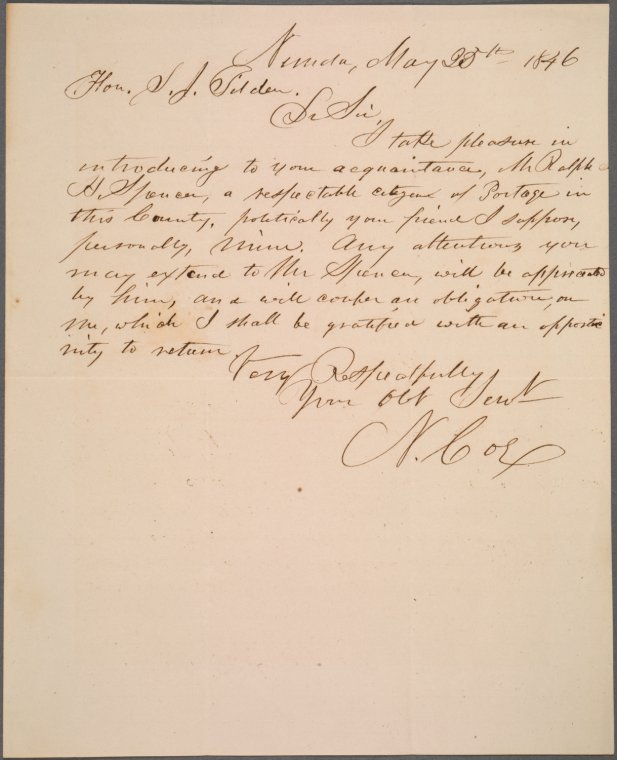 Nunda, May 25th 1846
Hon. S. J. Tilden.
Dr Sir,
I take pleasure in
introducing to your acquaintance, Mr Ralph
H. Spencer, a respectable citizen of Portage in
this County, politically your friend I suppose,
personally, mine. Any attentions you
may extend to Mr Spencer, will be appreciated
by him, and will confer an obligation, on
me, which I shall be gratified with an opportu
nity to return
Very Respectfully
Your Obt Servt
N. Coe